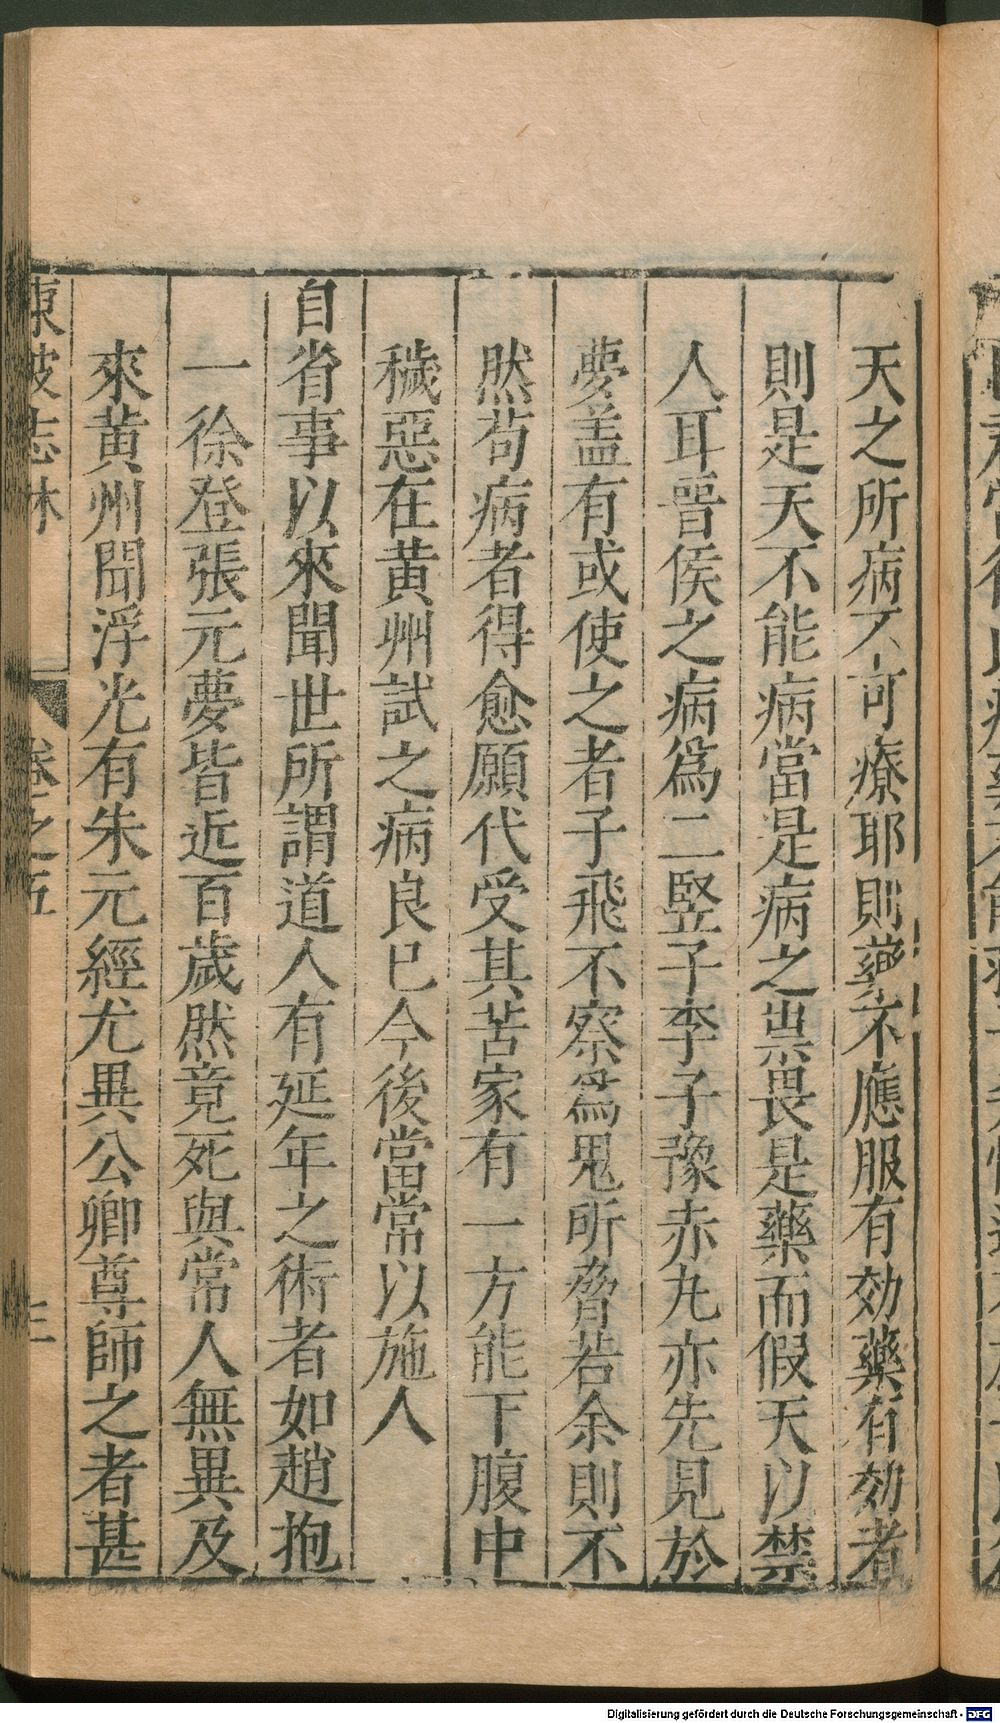 天之所病不可療耶則藥不應服有効藥有効者
則是天不能病當是病之祟畏是藥而假天以禁
人耳晉侯之病爲二竪子李子豫赤丸亦先見於
夢盖有或使之者子飛不察爲鬼所脅若余則不
然苟病者得愈願代受其苦家有一方能下腹中
穢惡在黄州試之病良已今後當常以施人
自省事以來聞世所謂道人有延年之術者如趙抱
一徐登張元夢皆近百歲然竟死與常人無異及
來黄州聞浮光有朱元經尤異公卿尊師之者甚
東坡志林 卷之五 三
Digitalisierung gefördert durch die Deutsche Forschungsgemeinschaft - DFG